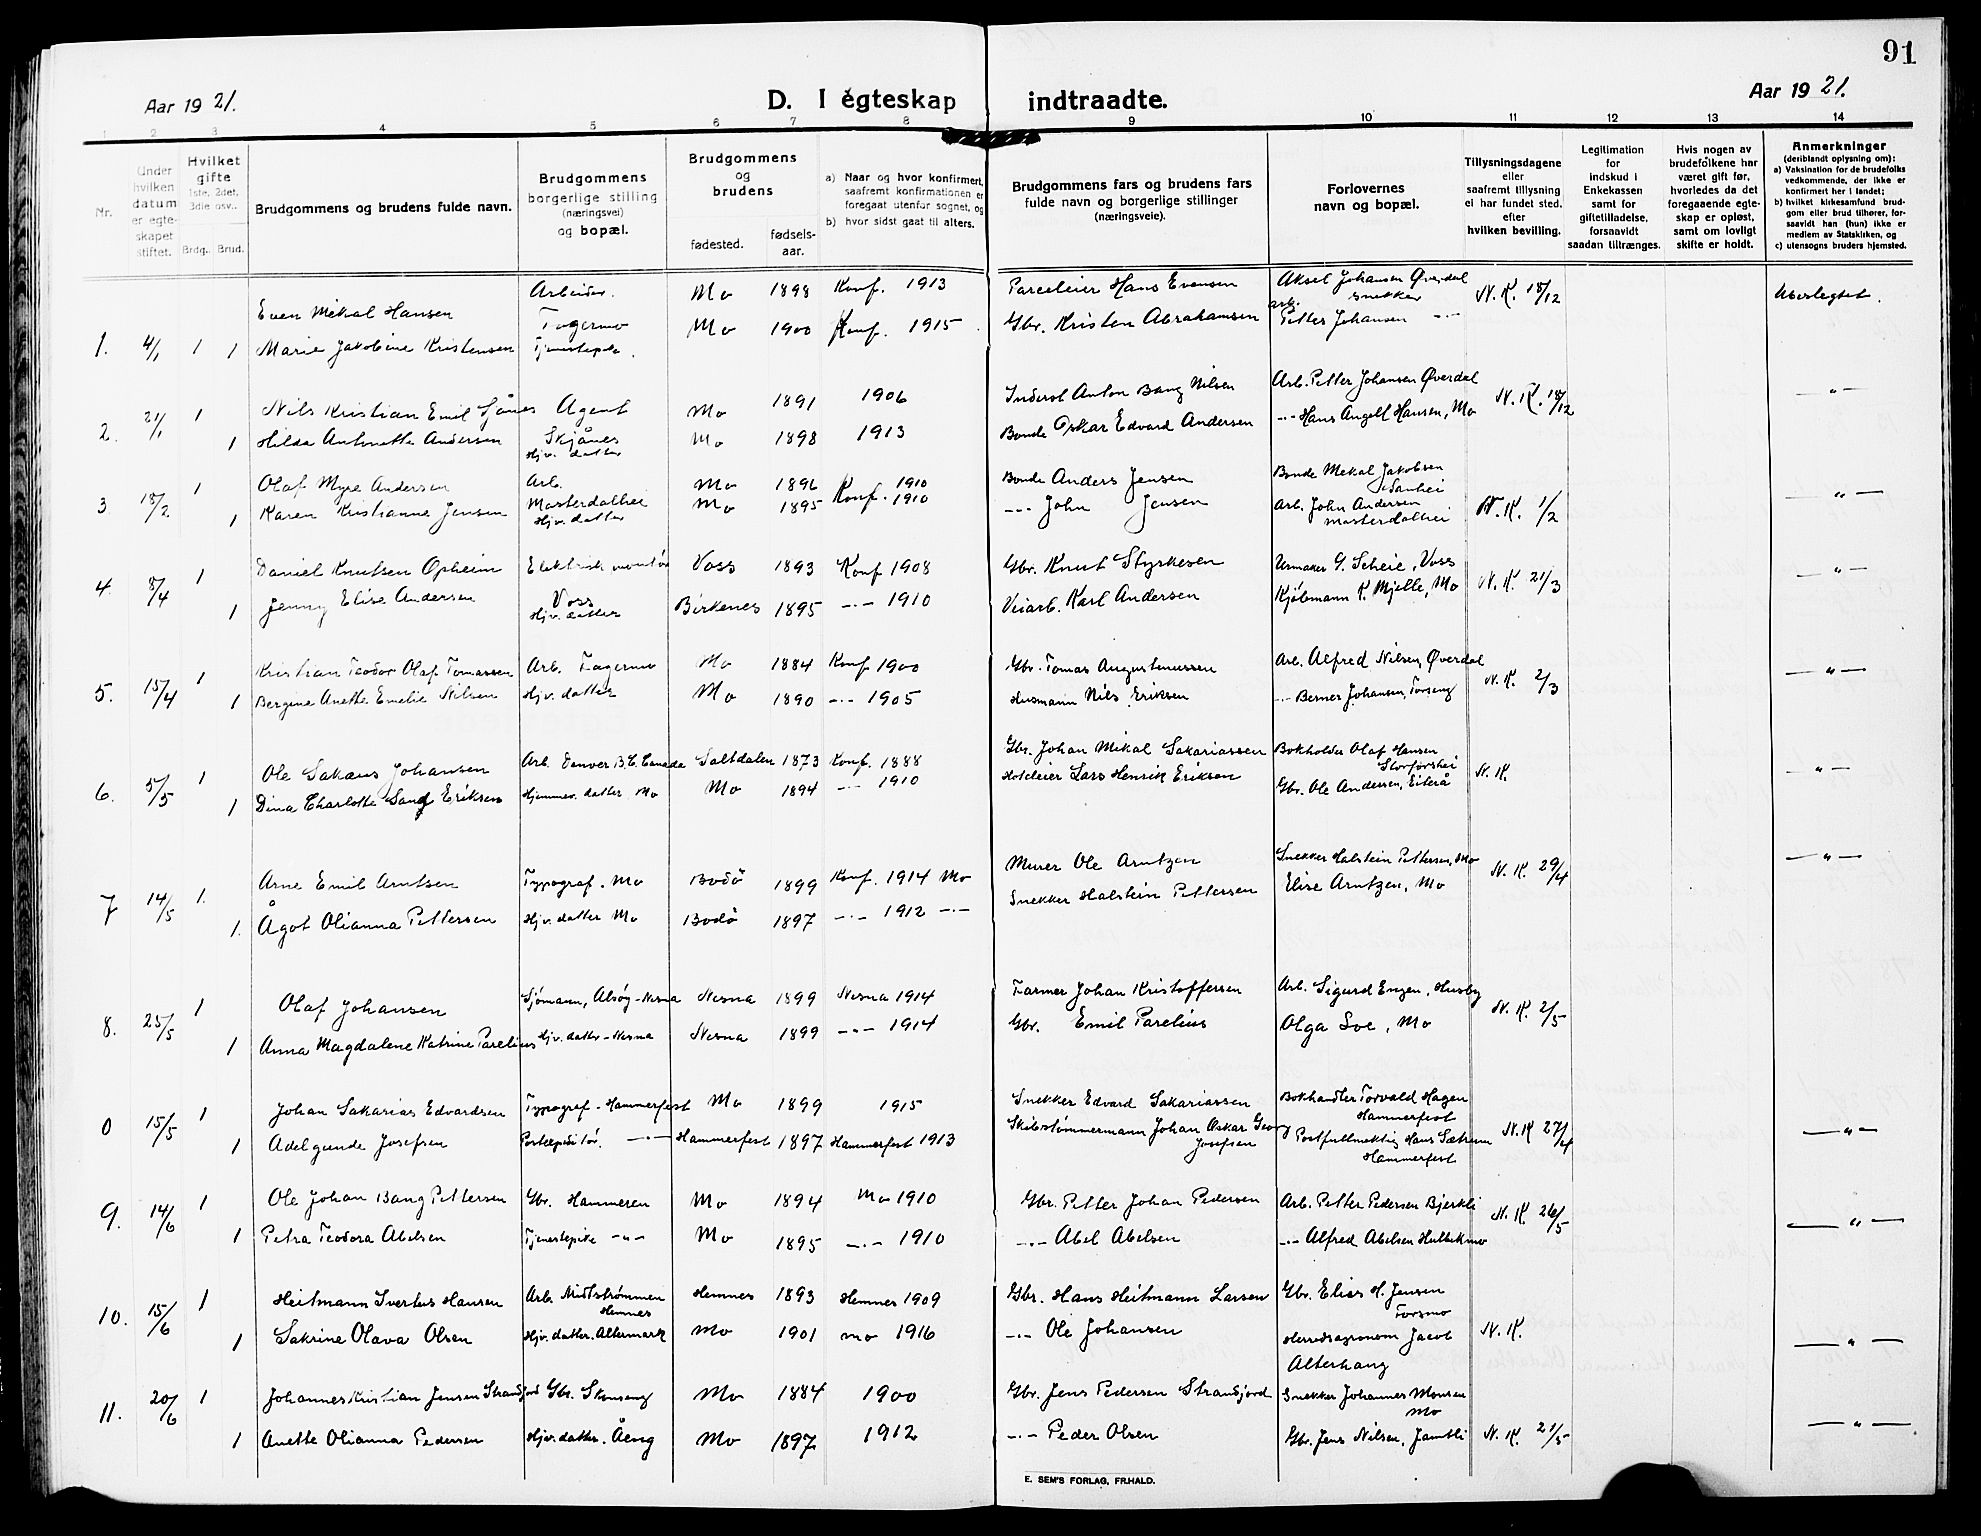 91
Aar 1921.
D. I egteskap indtraadte.
Aar 1921.
1 2 3 4 5 6 7 8 9 10 11 12 13 14
Nr.
Under hvilken datum er egteskapet stiftet.
Hvilket gifte 1ste, 2det, 3die osv. Brdg. Brud.
Brudgommens og brudens fulde navn.
Brudgommens borgerlige stilling (næringsvei) og bopæl.
Brudgommens og brudens
fødested.
fødselsaar.
a) Naar og hvor konfirmert, saafremt konfirmationen er foregaat utenfor sognet, og
b) hvor sidst gaat til alters.
Brudgommens fars og brudens fars fulde navn og borgerlige stillinger (næringsveie).
Forlovernes navn og bopæl.
Tillysningsdagene eller saafremt tillysning ei har fundet sted, efter hvilken bevilling.
Legitimation for indskud i Enkekassen samt for giftetilladelse, forsaavidt saadan tiltrænges.
Hvis nogen av brudefolkene har været gift før, hvorledes da det foregaaende egteskap er opløst, samt om lovligt skifte er holdt.
Anmerkninger (deriblandt oplysning om): a) Vaksination for de brudefolks vedkommende, der ikke er konfirmert her i landet; b) hvilket kirkesamfund brudgom eller brud tilhører, forsaavidt han (hun) ikke er medlem av Statskirken, og c) utensogns bruders hjemsted.
1. 4/1 1 Even Mekal Hansen Arbeider. Fagermo Mo 1898 Konf. 1913 Parceleier Hans Evensen Aksel Johansen Øverdal snekker N. K. 18/12 Ubeslegtet.
1 Marie Jakobine Kristensen Tjenestepike. Mo 1900 Konf. 1915. Gbr. Kristen Abrahamsen arb. Petter Johansen -"-
2. 21/1 1 Nils Kristian Emil Sjånes Agent Mo 1891 1906 Inderst Anton Bang Nilsen Arb. Petter Johansen Øverdal N. K. 18/12 -"-
1 Hilda Antonette Andersen Skjånes Hjv. datter Mo 1898 1913 Bonde Oskar Edvard Andersen -"- Hans Angell Hansen, Mo
3 18/2 1 Olaf Myre Andersen Arb. Mo 1896 Konf. 1910 Bonde Anders Jensen Bonde Mekal Jakobsen N. K. 1/2 -"-
1 Karen Kristianne Jensen Masterdalhei Hjv. datter Mo 1895 1910 -"- John Jensen Arb. John Andersen Masterdalhei
4. 8/4 1 Daniel Knutsen Opheim Elektrisk montør Voss Voss 1893 Konf 1908 Gbr. Knut Styrkesen Urmaker G. Scheie, Voss N. K. 21/3 -"-
1 Jenny Elise Andersen Hjv. datter Birkenes 1895 -"- 1910 Veiarb. Karl Andersen Kjøbmann K. Mjelle, Mo
5. 15/4 1 Kristian Teodor Olaf Tomassen Arb. Fagermo Mo 1884 Konf 1900 Gbr. Tomas Augustinussen Arb. Alfred Nilsen, Øverdal N. K. 2/3 -"-
1 Bergine Anette Emelie Nilsen Hjv. datter Mo 1890 -"- 1905 Husmann Nils Eriksen -"- Berner Johansen, Forseng
6. 5/5 1 Ole Sakæus Johansen Arb. Denver B.C. Canada Saltdalen 1873 Konf. 1888 Gbr. Johan Mikal Sakariassen Bokholder Olaf Hansen Storforshei N. K. -"-
1 Dina Charlotte Sand Eriksen Hjemmev. datter Mo Mo 1894 -"- 1910 Lars Henrik Eriksen Gbr. Ole Andersen, Eiterå
7 14/5 1. Arne Emil Arntsen Typograf. Mo Bodö 1899 Konf. 1914 Mo Murer Ole Arntzen Snekker Halstein Pettersen, Mo N. K. 29/4 -"-
1. Ågot Olianna Pettersen Hjv. datter Mo Bodö 1897 -"- 1912 -"- Snekker Halstein Pettersen Elise Arntzen, Mo
8. 25/5 1 Olaf Johansen Sjømann, Alsøy-Nesna Nesna 1899 Nesna 1914 Farmer Johan Kristoffersen Arb. Sigurd Engen, Husby N. K. 2/5
1 Anna Magdalene Katrine Parelius Hjv. datter - Nesna Nesna 1899 -"- 1914 Gbr. Emil Parelius Olga Soe, Mo
0 15/5 1 Johan Sakarias Edvardsen Typograf - Hammerfest Mo 1899 1915 Snekker Edvard Sakariassen Bokhandler Torvald Hagen Hammerfest N. K 27/4 -"-
1 Adelgunde Josefsen -"- Hammerfest 1897 Hammerfest 1913 Skibstømmermann Johan Oskar Georg Josefsen Postfullmektig Hans Sætrum Hammerfest
9. 14/6 1 Ole Johan Bang Pettersen Gbr. Hammeren Mo 1894 Mo 1910 Gbr. Petter Johan Pedersen Arb. Petter Pedersen Bjerkli N. K. 26/5 -"-
1 Petra Teodora Abelsen Tjenestepike -"- Mo 1895 -"- 1910 -"- Abel Abelsen -"- Alfred Abelsen Hulbekmo
10. 15/6 1 Heitmann Svertus Hansen Arb. Midtstrømmen Hemnes Hemnes 1893 Hemnes 1909 Gbr. Hans Heitmann Larsen Gbr. Elias H. Jensen Forsmo N. K. -"-
1 Sakrine Olava Olsen Hjv. datter. Altermark Mo 1901 Mo 1916 -"- Ole Johansen Herredsagronom Jacob Alterhaug
11. 20/6 1 Johannes Kristian Jensen Strandjord Gbr. Skonseng Mo 1884 1900 Gbr. Jens Pedersen Strandjord Snekker Johannes Monsen Mo N. K. 21/5 -"-
1 Anette Olianna Pedersen Hjv. datter. Åeng Mo 1897 1912 -"- Peder Olsen Gbr. Jens Nilsen, Jamtli
E. SEM'S FORLAG, FR.HALD.